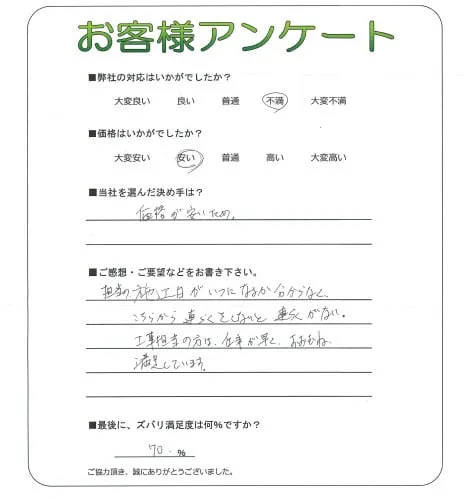 お客様アンケート
■弊社の対応はいかがでしたか?
大変良い 良い 普通 不満 大変不満
■価格はいかがでしたか?
大変安い 安い 普通 高い 大変高い
■当社を選んだ決め手は?
価格が安いため。
■ご感想・ご要望などをお書き下さい。
担当の施工日がいつになるか分からなく、
こちらから連らくをしないと連らくがない。
工事担当の方は、仕事が早く、おおむね
満足しています。
■最後に、ズバリ満足度は何%ですか?
70.%
ご協力頂き、誠にありがとうございました。